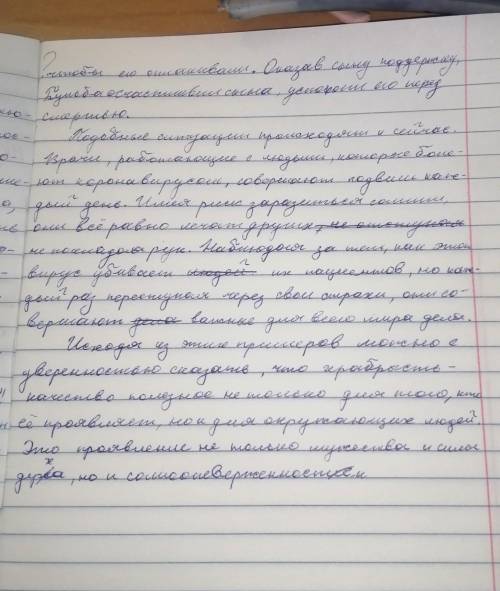 ?
чтобы его оплакивали. Оказав сыну поддержку,
Бульба осчастливил сына, успокоил его перед
смертью.
Подобные ситуации происходят и сейчас.
Врачи, работающие с людьми, которые боле-
ют коронавирусом, совершают подвиги каж-
дый день. Имея риск заразиться самими,
они всё равно лечат других, не отступая
не покладая рук. Наблюдая за тем, как этот
вирус убивает людей их пациентов, но каж-
дый раз переступая через свои страхи, они со-
вершают дела важные для всего мира дела.
Исходя из этих примеров можно с
уверенностью сказать, что храбрость -
качество полезное не только для того, кто
её проявляет, но и для окружающих людей.
Это проявление не только мужества и силы
духа, но и самоотверженности